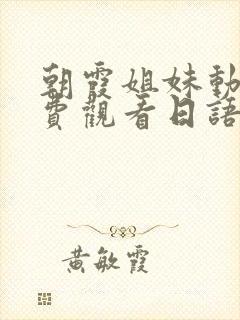 朝霞姐妹動
費觀看日語
黃敏霞